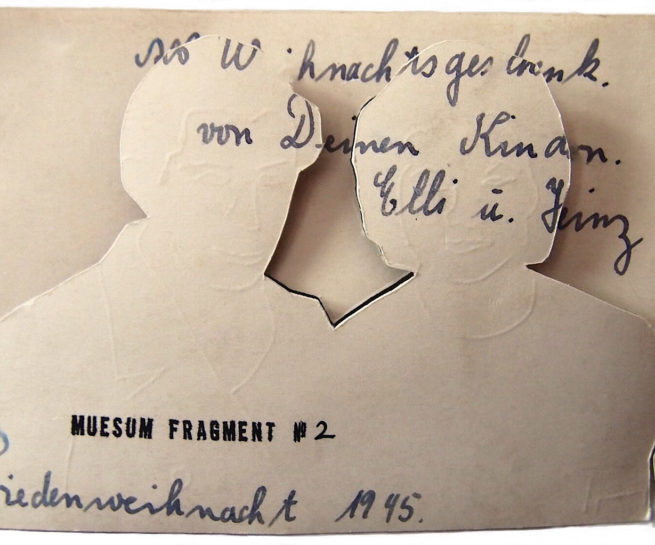 als Weihnachtsgeschenk.
von Deinen Kindern.
Elli u. Heinz
MUESUM FRAGMENT № 2
riedenweihnacht 1945.